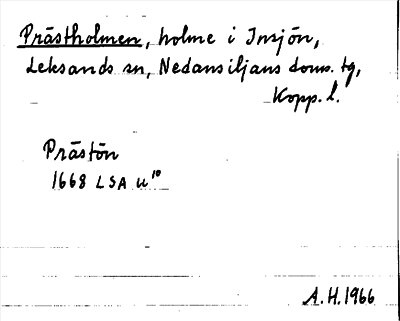 Prästholmen, holme i Insjön,
Leksands sn, Nedansiljans doms. tg,
Kopp. l.
Prästön
1668 LSA U¹⁰
A.H. 1966